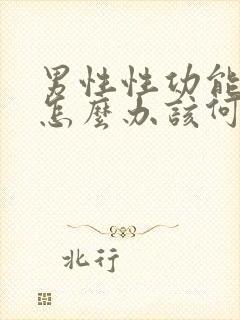 男性性功能
怎麼办該何
北行